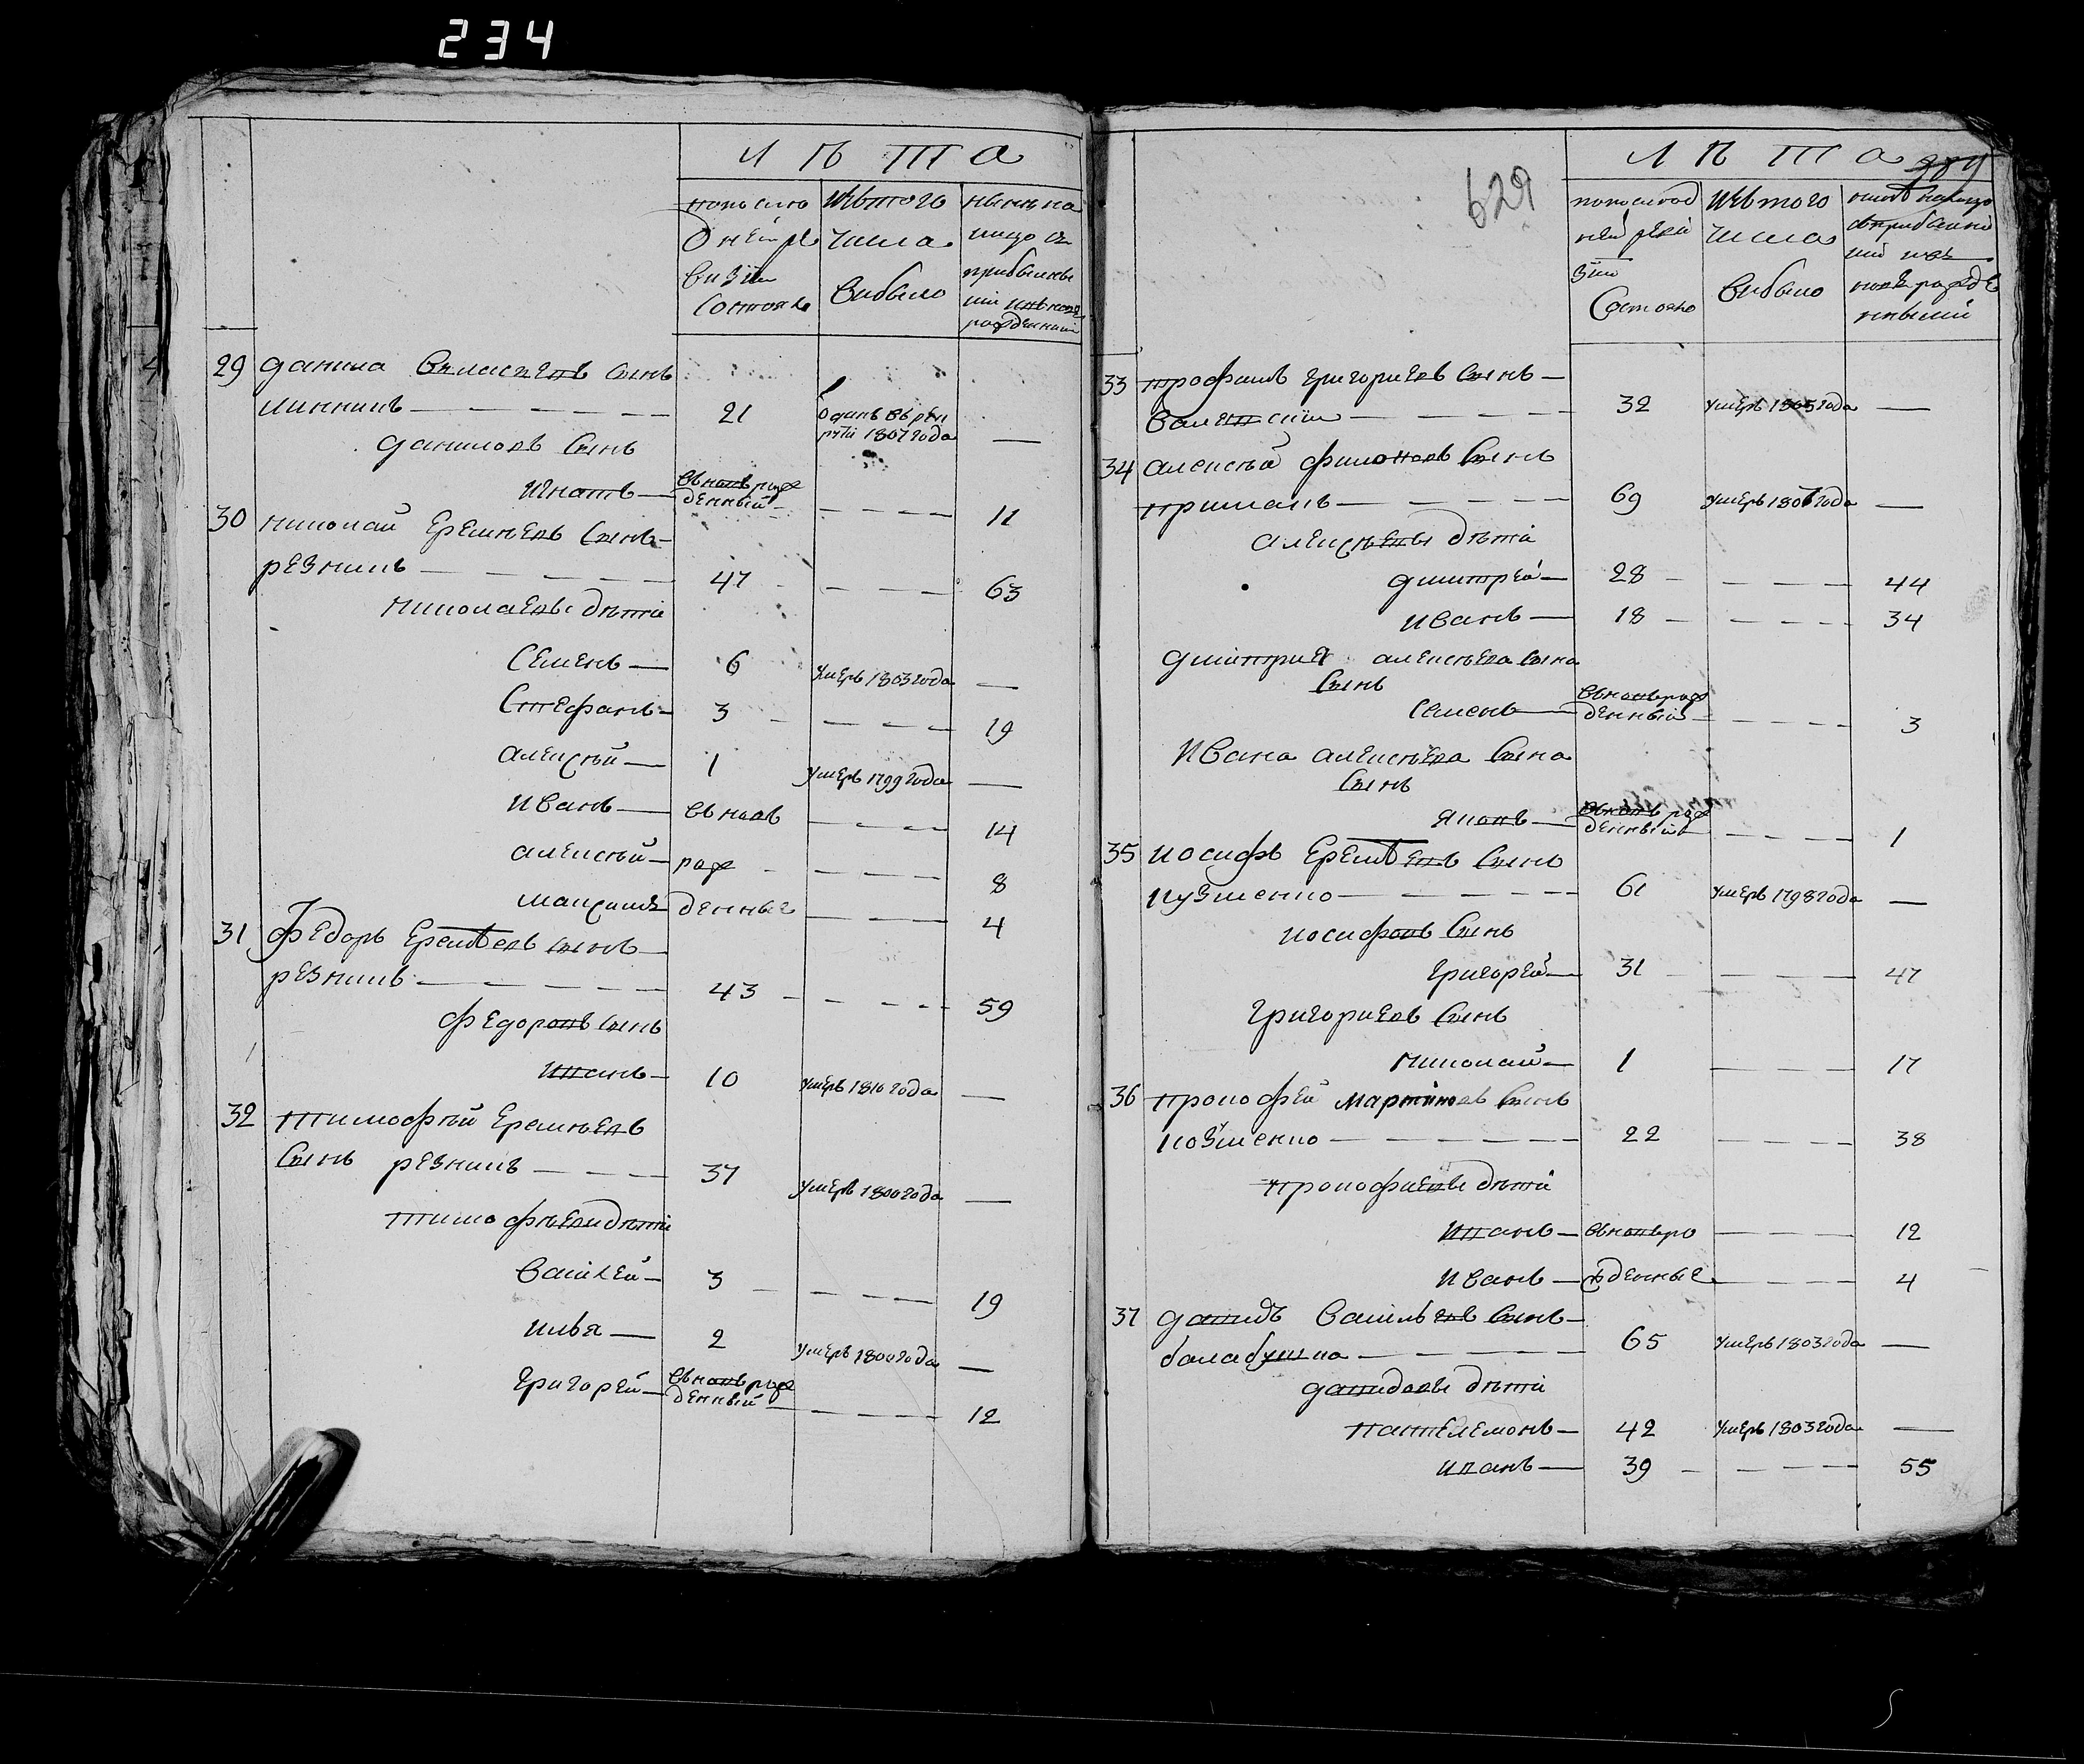 234
Л Ѣ Т А
по после
дней ре
визіи
состояло
Изъ того
числа
выбыло
ныне на
лицо съ
прибылы
ми и вновь
рожденными
29 Данила Власиевъ сынъ
Линникъ — 21 отданъ въ рек
руты 1807 года —
Даниловъ сынъ
Игнатъ — вновь рож
денный — 11
30 Николай Еремѣевъ сынъ
Резникъ — 47 — 63
Николаевы дѣти
Семенъ — 6 умеръ 1803 года —
Стефанъ — 3 — 19
Алексѣй — 1 умеръ 1799 года —
Иванъ — вновь — 14
Алексѣй — рож — 8
Максимъ — денные — 4
31 Федоръ Еремѣевъ сынъ
Резникъ — 43 — 59
Федоровъ сынъ
Иванъ — 10 умеръ 1810 года —
32 Тимофѣй Еремѣевъ
сынъ Резникъ — 37 умеръ 1800 года —
Тимофѣеви дѣти
Василей — 3 — 19
Илья — 2 умеръ 1800 года —
Григорей — вновь рож
денный — 12
629
Л Ѣ Т А
по послед
ней реви
зіи
состояло
Изъ того
числа
выбыло
33 Трофимъ Григориевъ сынъ —
32 умеръ 1805 года —
34 Алексѣй Филоновъ сынъ
Примакъ — 69 умеръ 1807 года —
Алексѣевы дѣти
Дмитрей — 28 — 44
Иванъ — 18 — 34
Дмитрия Алексѣева сына
сынъ
Семенъ — вновь рож
денный — 3
Ивана Алексѣева сына
сынъ
Яковъ — вновь рож
денный — 1
35 Иосифъ Еремѣевъ сынъ
Кузменко — 61 умеръ 1798 года —
Иосифовъ сынъ
Григорей — 31 — 47
Григориевъ сынъ
Николай — 1 — 17
36 Прокофей Мартиновъ сынъ
Козменко — 22 — 38
Прокофиевы дѣти
Иванъ — вновь ро — 12
Иванъ — жденные — 4
37 Давидъ Васильевъ сынъ —
Балабушка — 65 умеръ 1803 года —
Давидовы дѣти
Пантелемонъ — 42 умеръ 1803 года —
Иванъ — 39 — 55